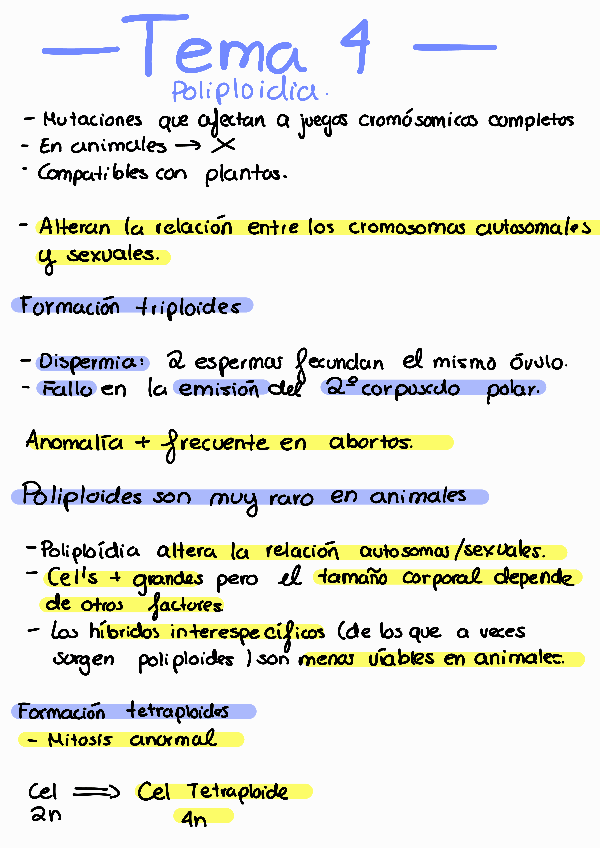 — Tema 4 —
Poliploidia.
- Mutaciones que afectan a juegos cromósomicos completos
- En animales → X
- Compatibles con plantas.
- Alteran la relación entre los cromosomas autosomales
y sexuales.
Formación triploides
- Dispermia: 2 espermas fecundan el mismo óvulo.
- Fallo en la emisión del 2º corpusculo polar.
Anomalía + frecuente en abortos.
Poliploides son muy raro en animales
- Poliploídia altera la relación autosomas/sexuales.
- Cel's + grandes pero el tamaño corporal depende
de otros factores
- Los híbridos interespecíficos (de los que a veces
surgen poliploides) son menos viables en animales.
Formación tetraploides
- Mitosis anormal
Cel ⟹ Cel Tetraploide
2n 4n